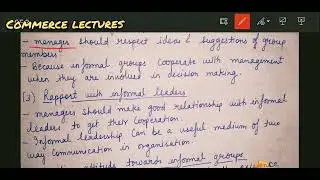 COMMERCE LECTURES
- manager should respect ideas & suggestions of group
members.
- Because informal groups cooperate with management
when they are involved in decision making.
[3] Rapport with informal leaders
- managers should make good relationship with informal
leaders to get their cooperation.
- Informal leadership can be a useful medium of two
way communication in organisation.
attitude towards informal groups